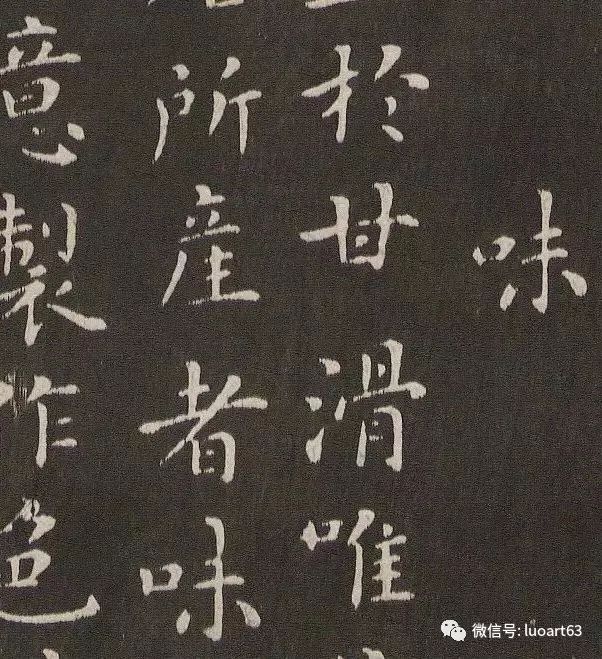 味
於甘滑唯
所産者味
意製作色
微信号: luoart63